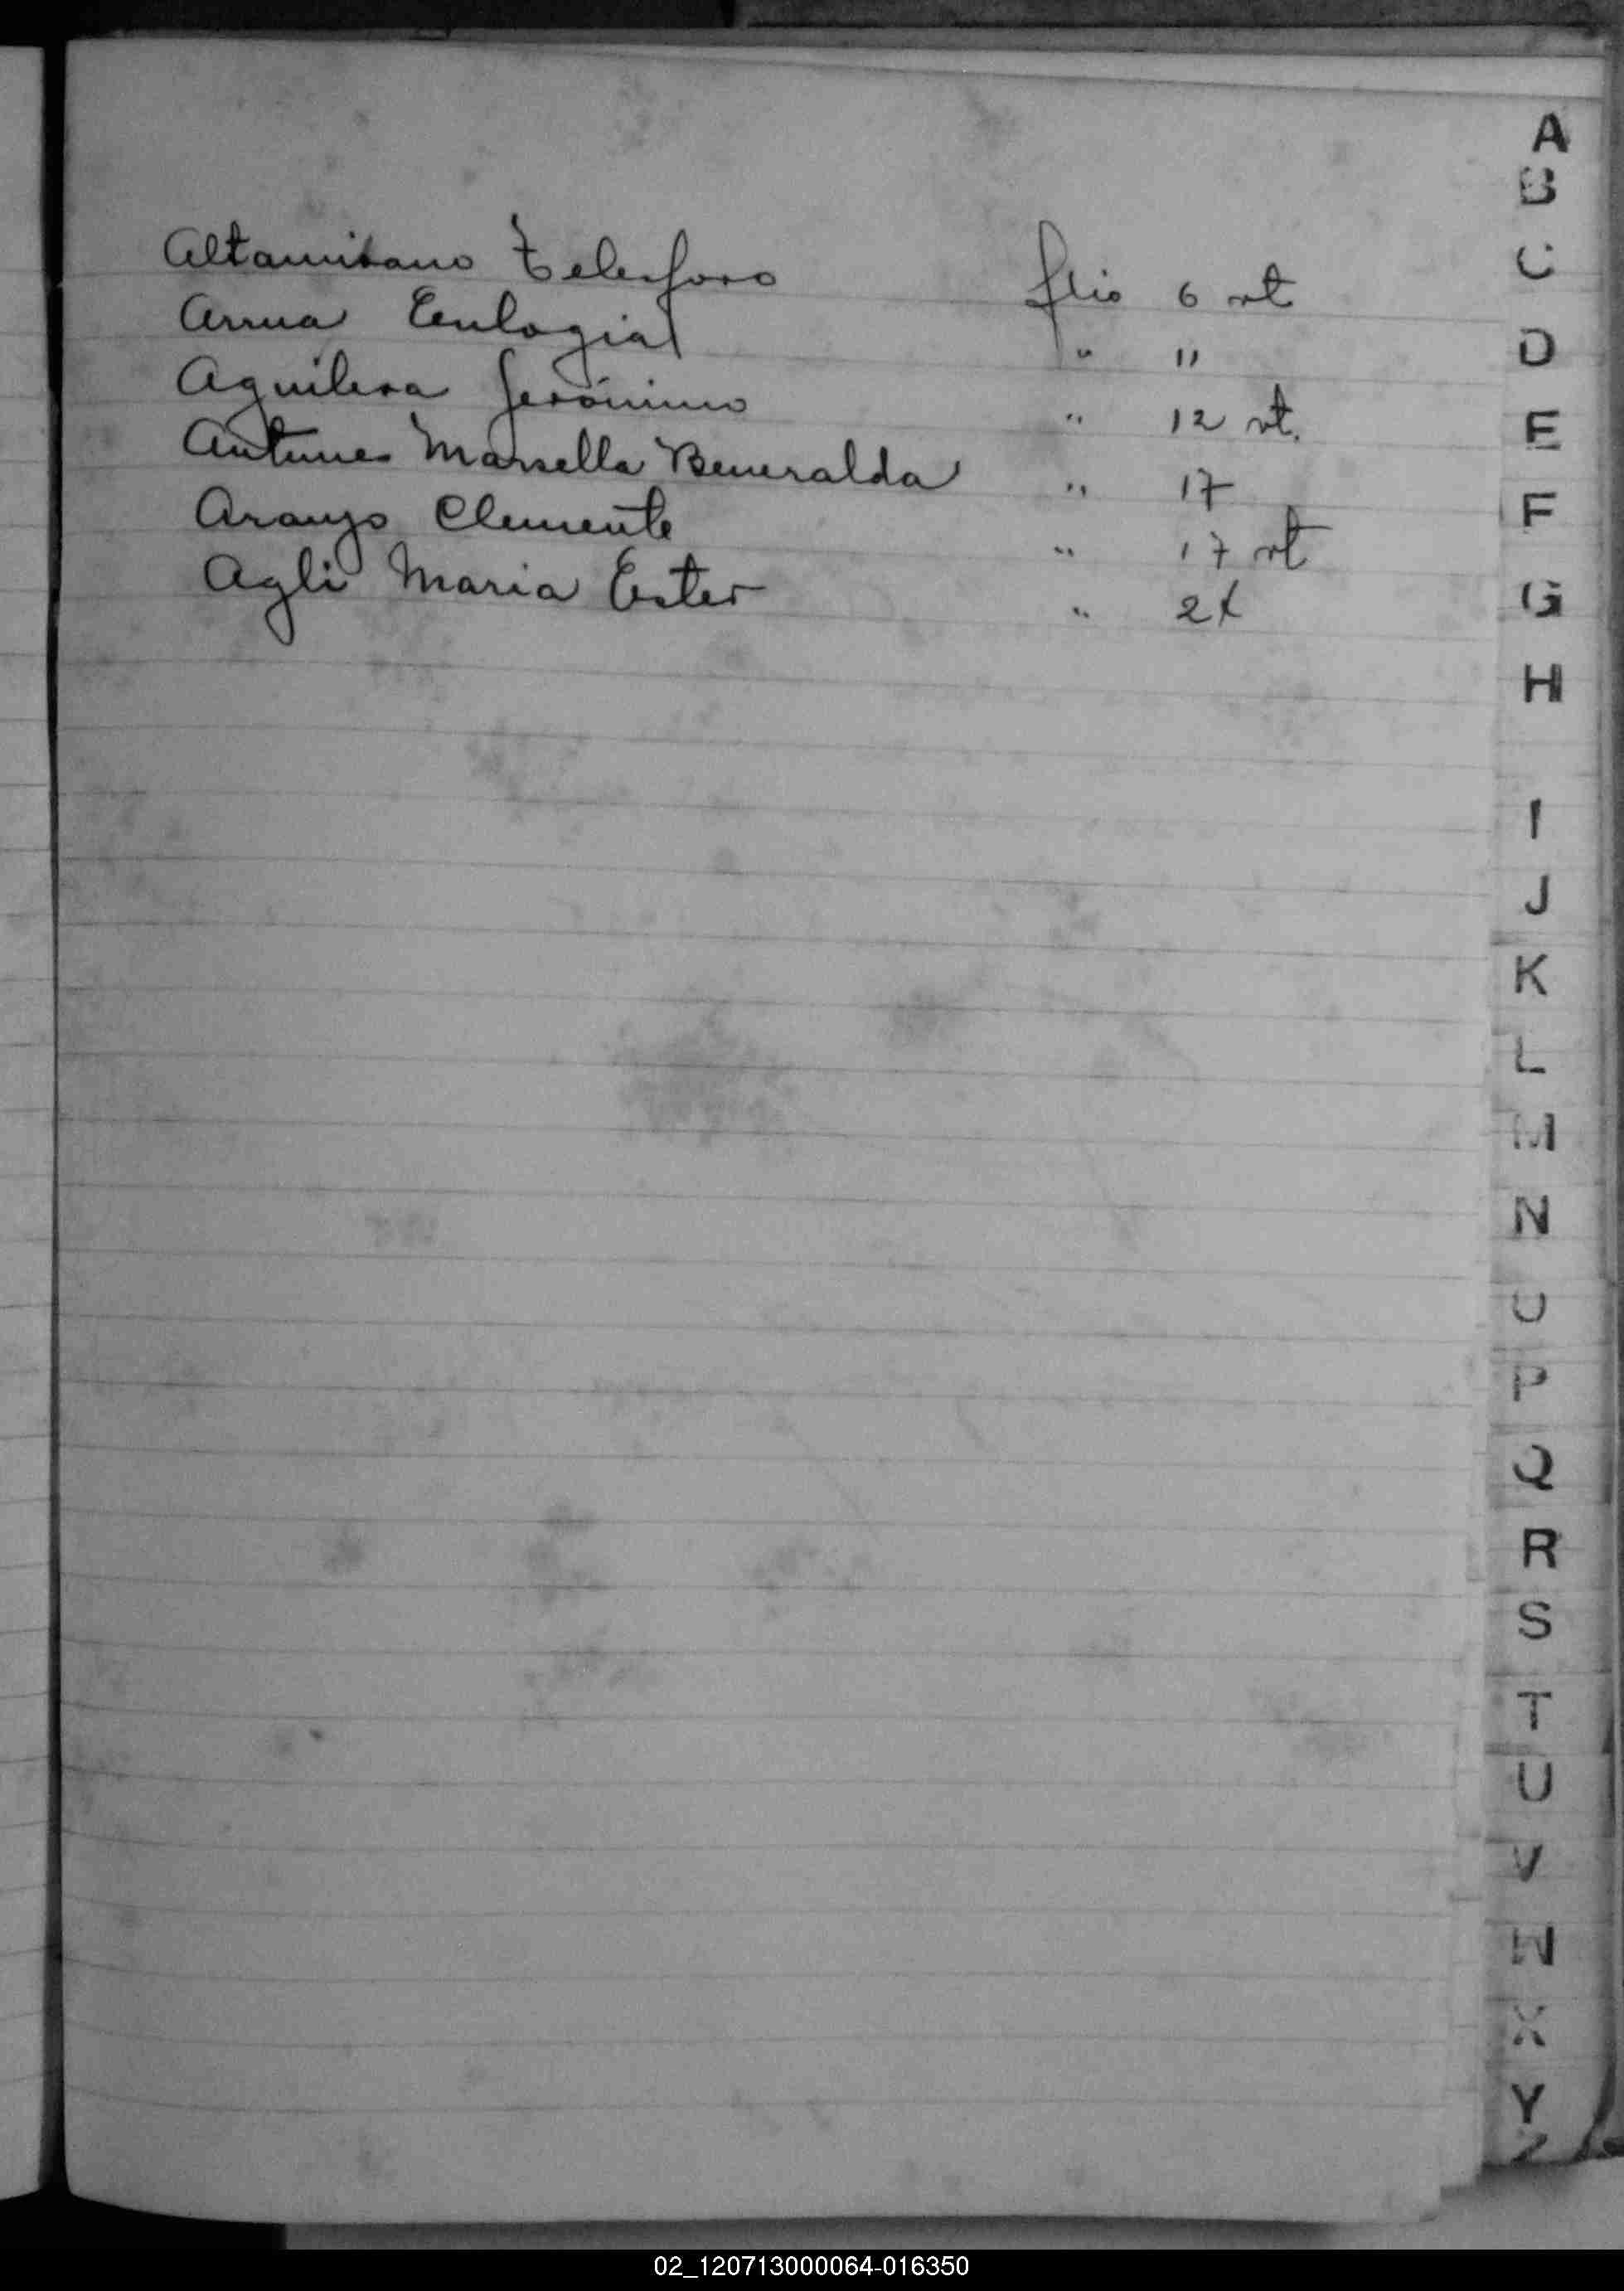 Altamirano Telesforo flio 6 vt
Arrua Eulogia " 11
Aguilera Jerónimo " 12 vt.
Antunes Marsella Bemeralda " 17
Araujo Clemente " 17 vt
Agli Maria Ester "
A
B
C
D
E
F
G
H
I
J
K
L
M
N
O
P
Q
R
S
T
U
V
W
X
Y
Z
02_120713000064-016350